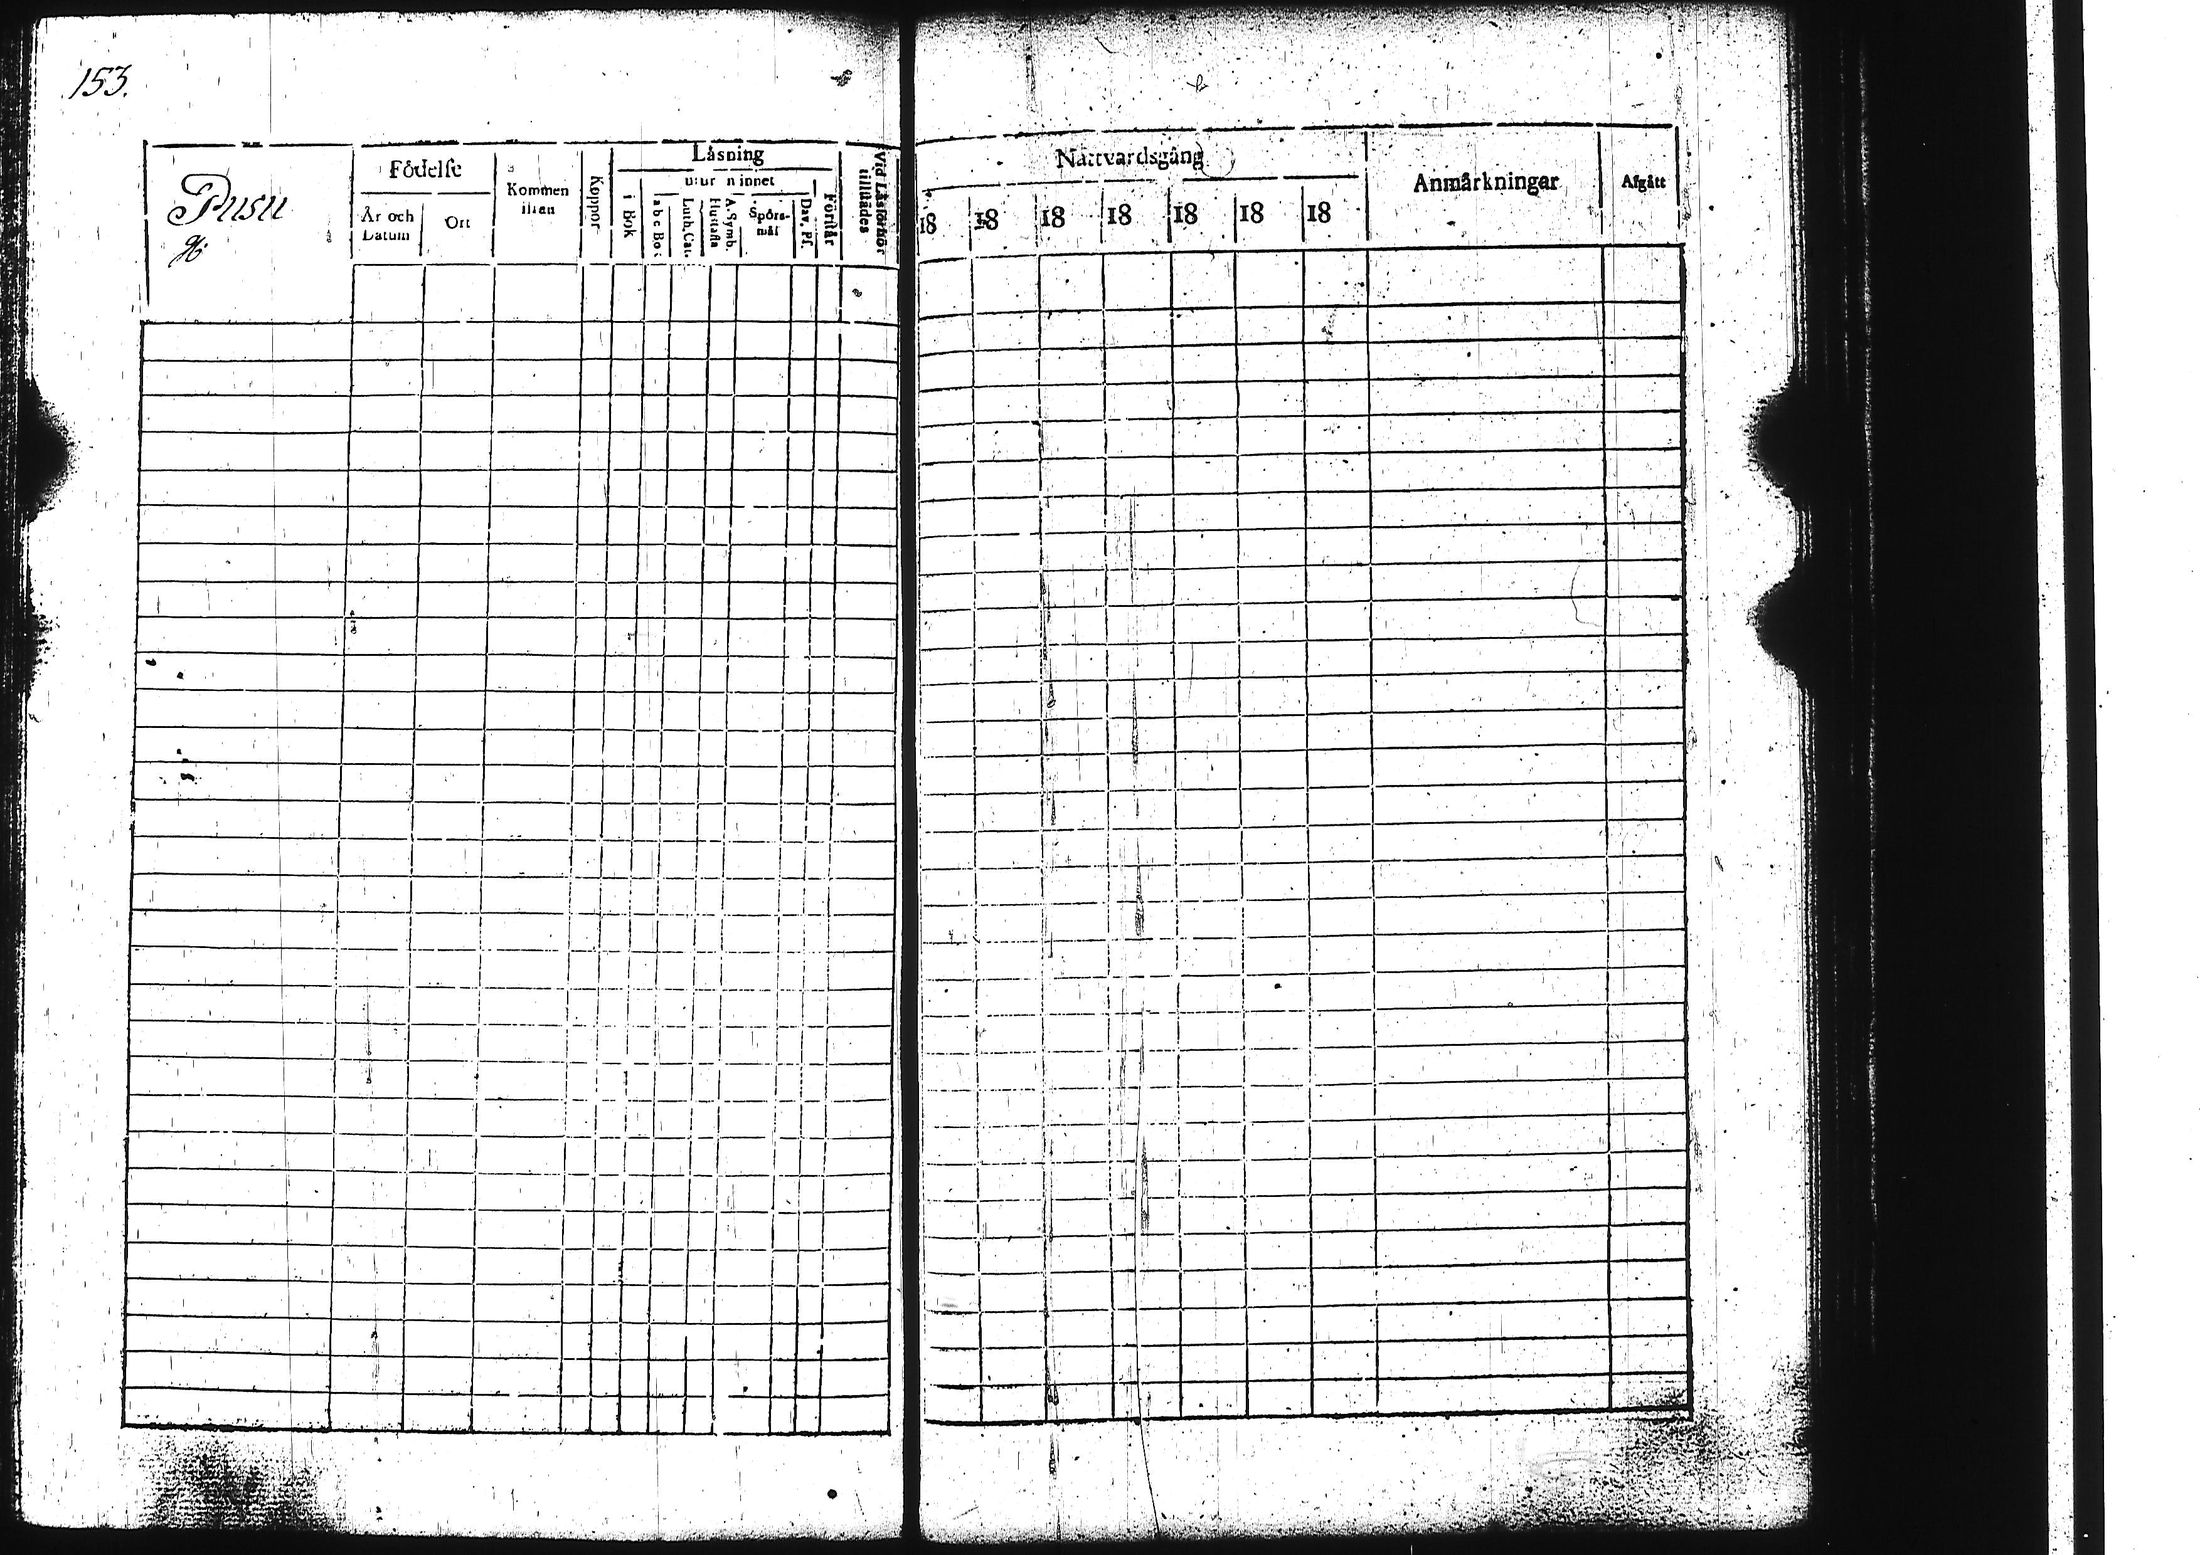 153.
Pusu
Födelse
År och Datum
Ort
Kommen ifrån
Koppor
Läsning
i Bok
utur minnet
Luth. Cat.
Hustafla
A. Symb.
Spörsmål
Dav. Ps.
Förstår
Vid Läsförhör tillstädes
Nattvardsgång
18 18 18 18 18 18 18
Anmärkningar
Afgått